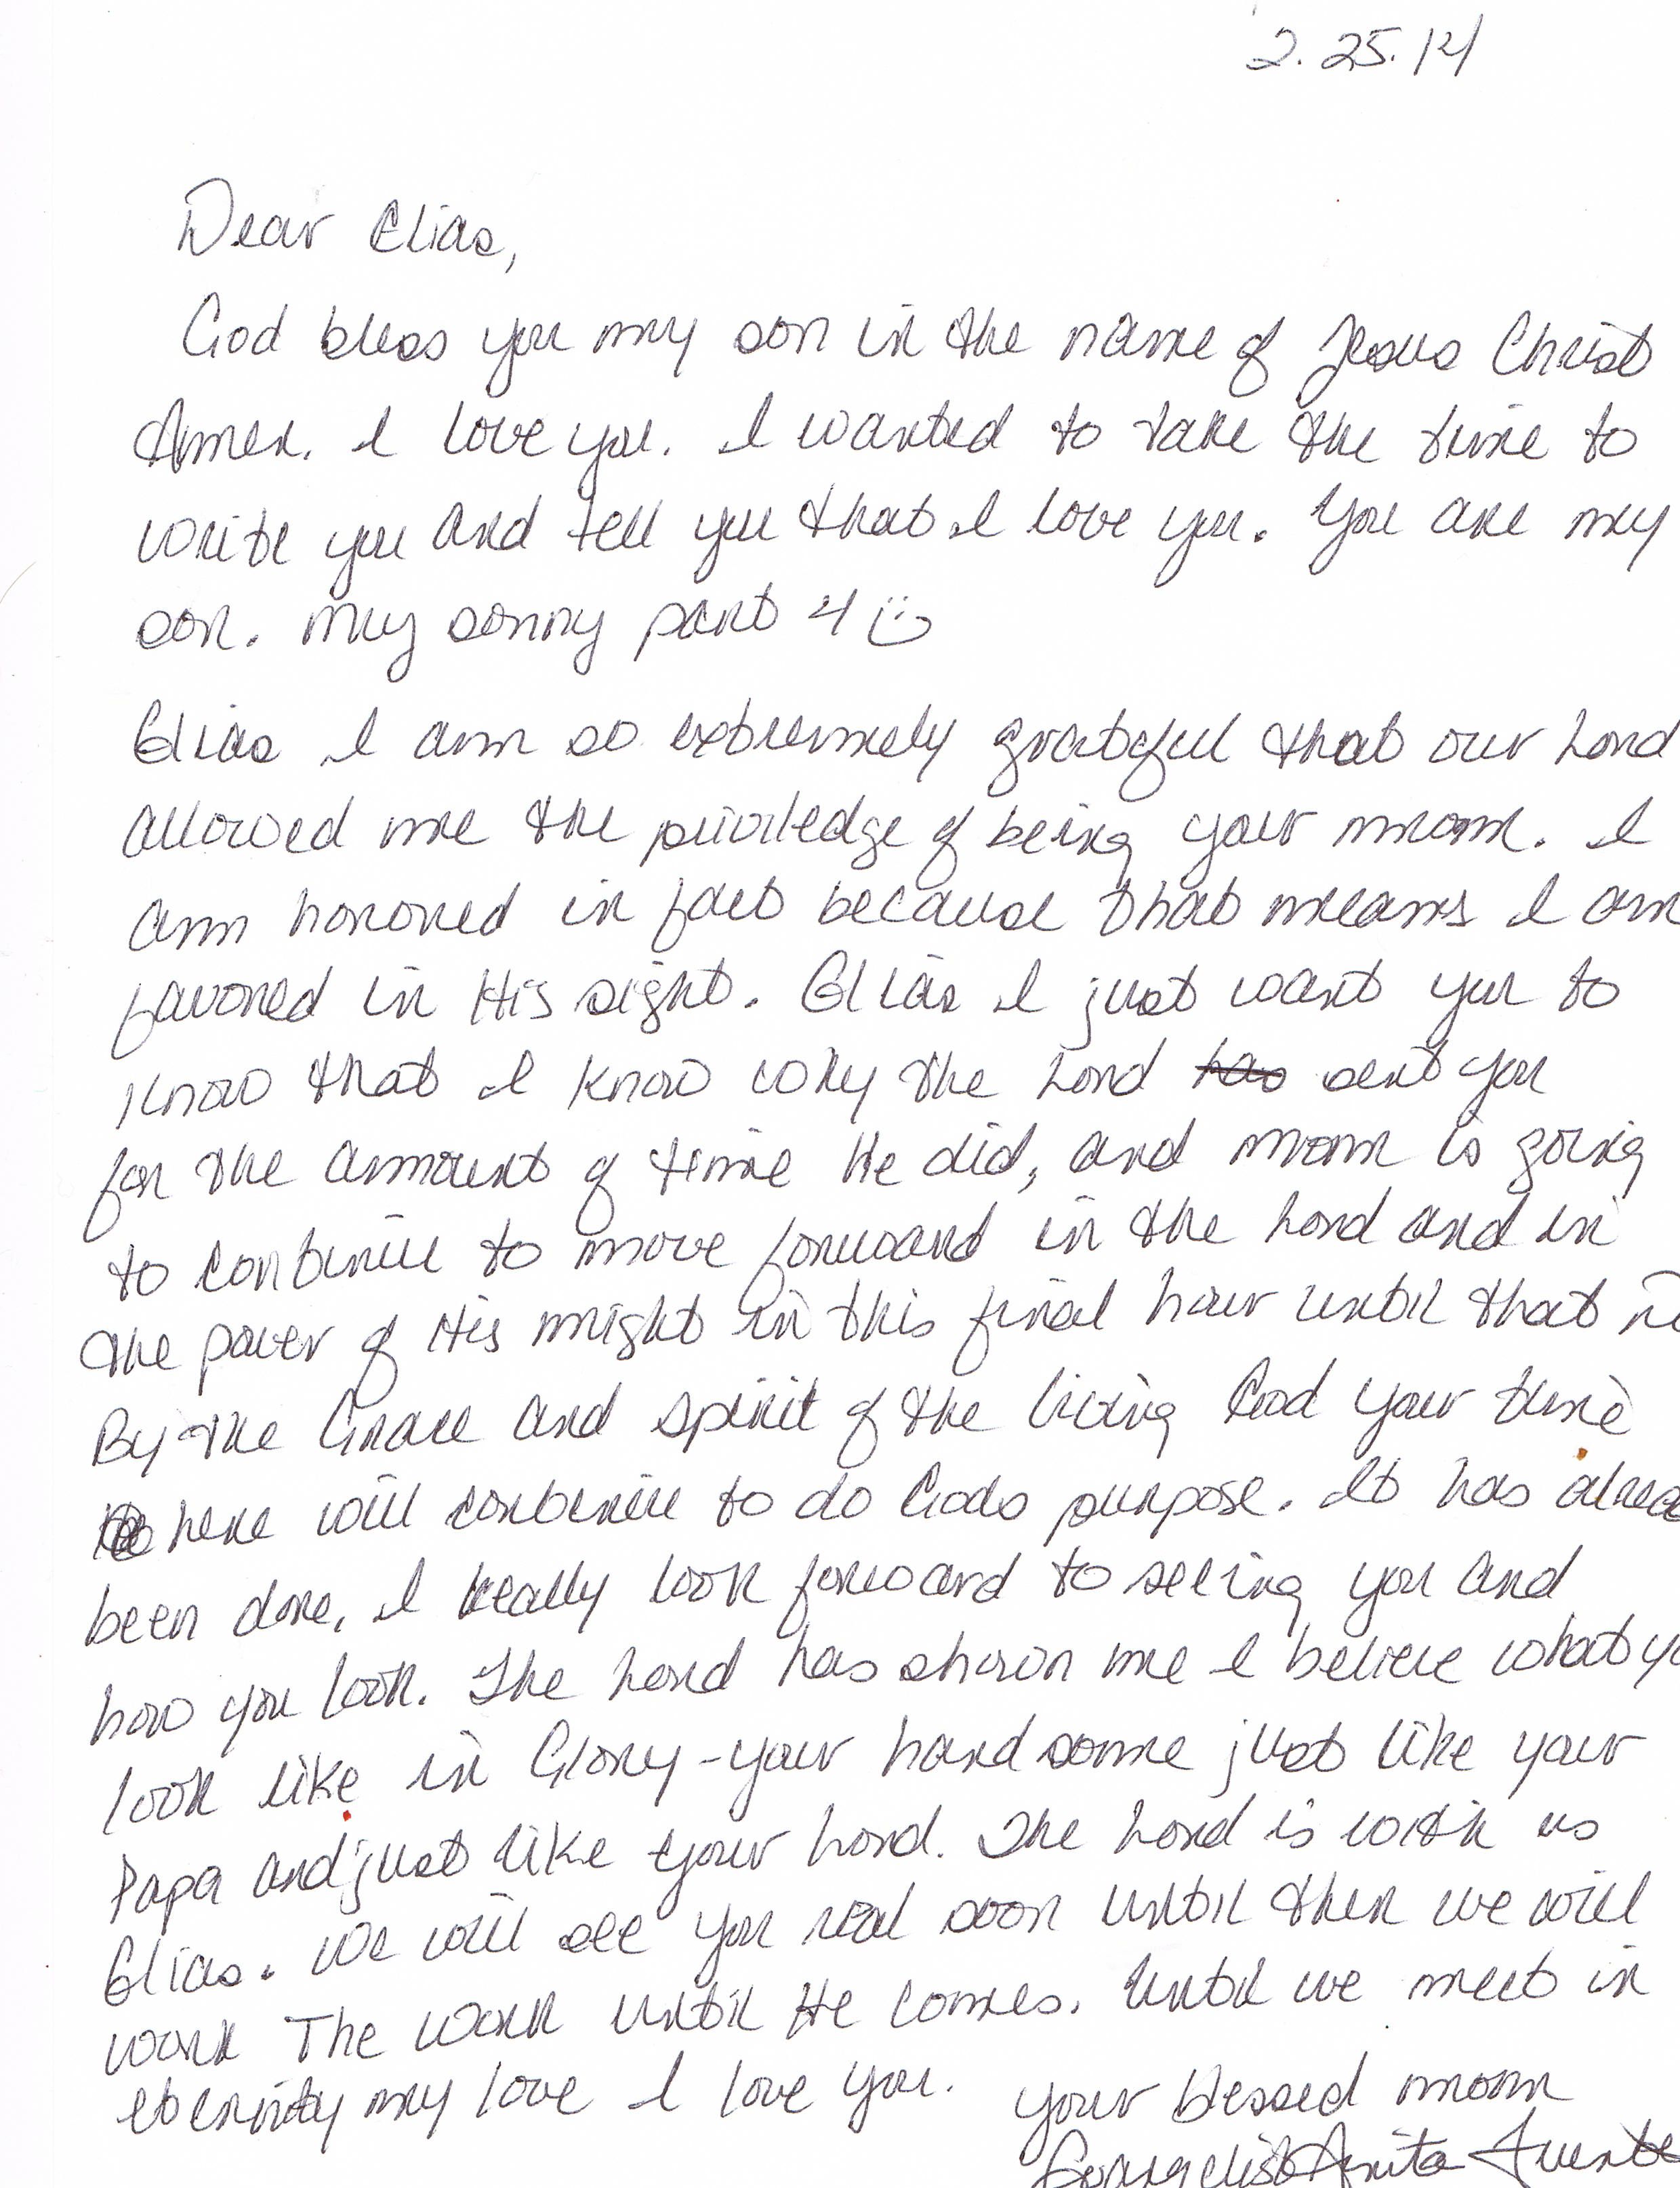 2.25.14
Dear Elias,
God bless you my son in the name of Jesus Christ
Amen. I love you. I wanted to take the time to
write you and tell you that I love you. You are my
son. My sonny part 4
Elias I am so extremely grateful that our Lord
allowed me the priviledge of being your mom. I
am honored in fact because that means I am
favored in His sight. Elias I just want you to
know that I know why the Lord has sent you
for the amount of time He did, and mom is going
to continue to move forward in the Lord and in
the power of His might in this final hour until that
By the Grace and Spirit of the living God your time
here will continue to do Gods purpose. It has alrea
been done. I really look forward to seeing you and
how you look. The Lord has shown me I believe what yo
look like in Glory - your handsome just like your
Papa and just like your Lord. The Lord is with us
Elias. We will see you real soon until then we will
work The work until He comes. Until we meet in
eternity my love I love you. Your blessed mom
Evangelist Anita Fuente